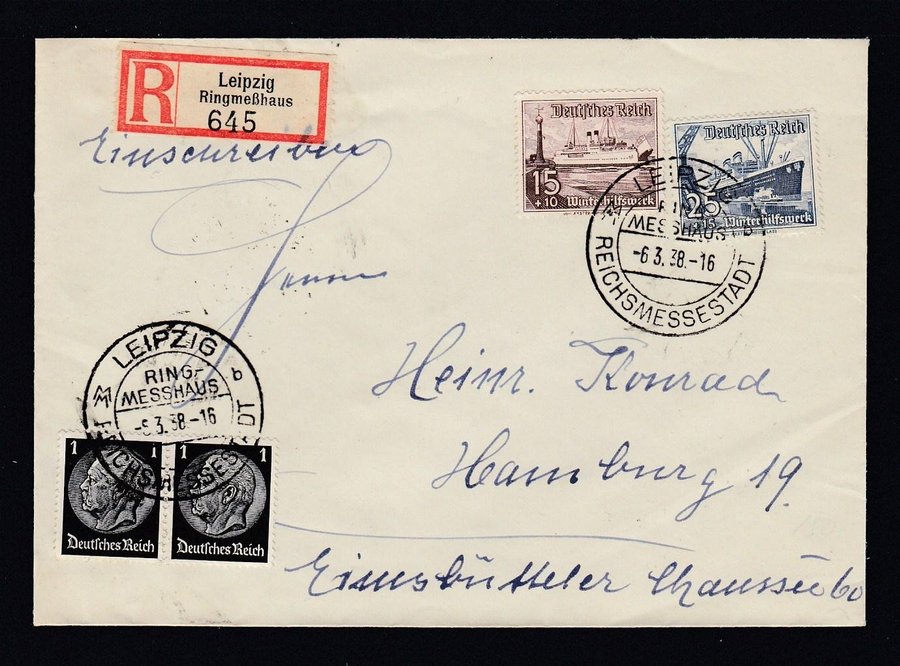 R
Leipzig
Ringmeßhaus
645
Einschreiben
Deutsches Reich
15
+10 Winterhilfswerk
Deutsches Reich
25
+15 Winterhilfswerk
LEIPZIG
RING-
MESSHAUS b
-6.3.38.-16
REICHSMESSESTADT
Herrn
Heinr. Konrad
Hamburg 19.
Eimsbütteler Chaussee 60
LEIPZIG
RING-
MESSHAUS b
-6.3.38.-16
REICHSMESSESTADT
1 1
Deutsches Reich
1 1
Deutsches Reich